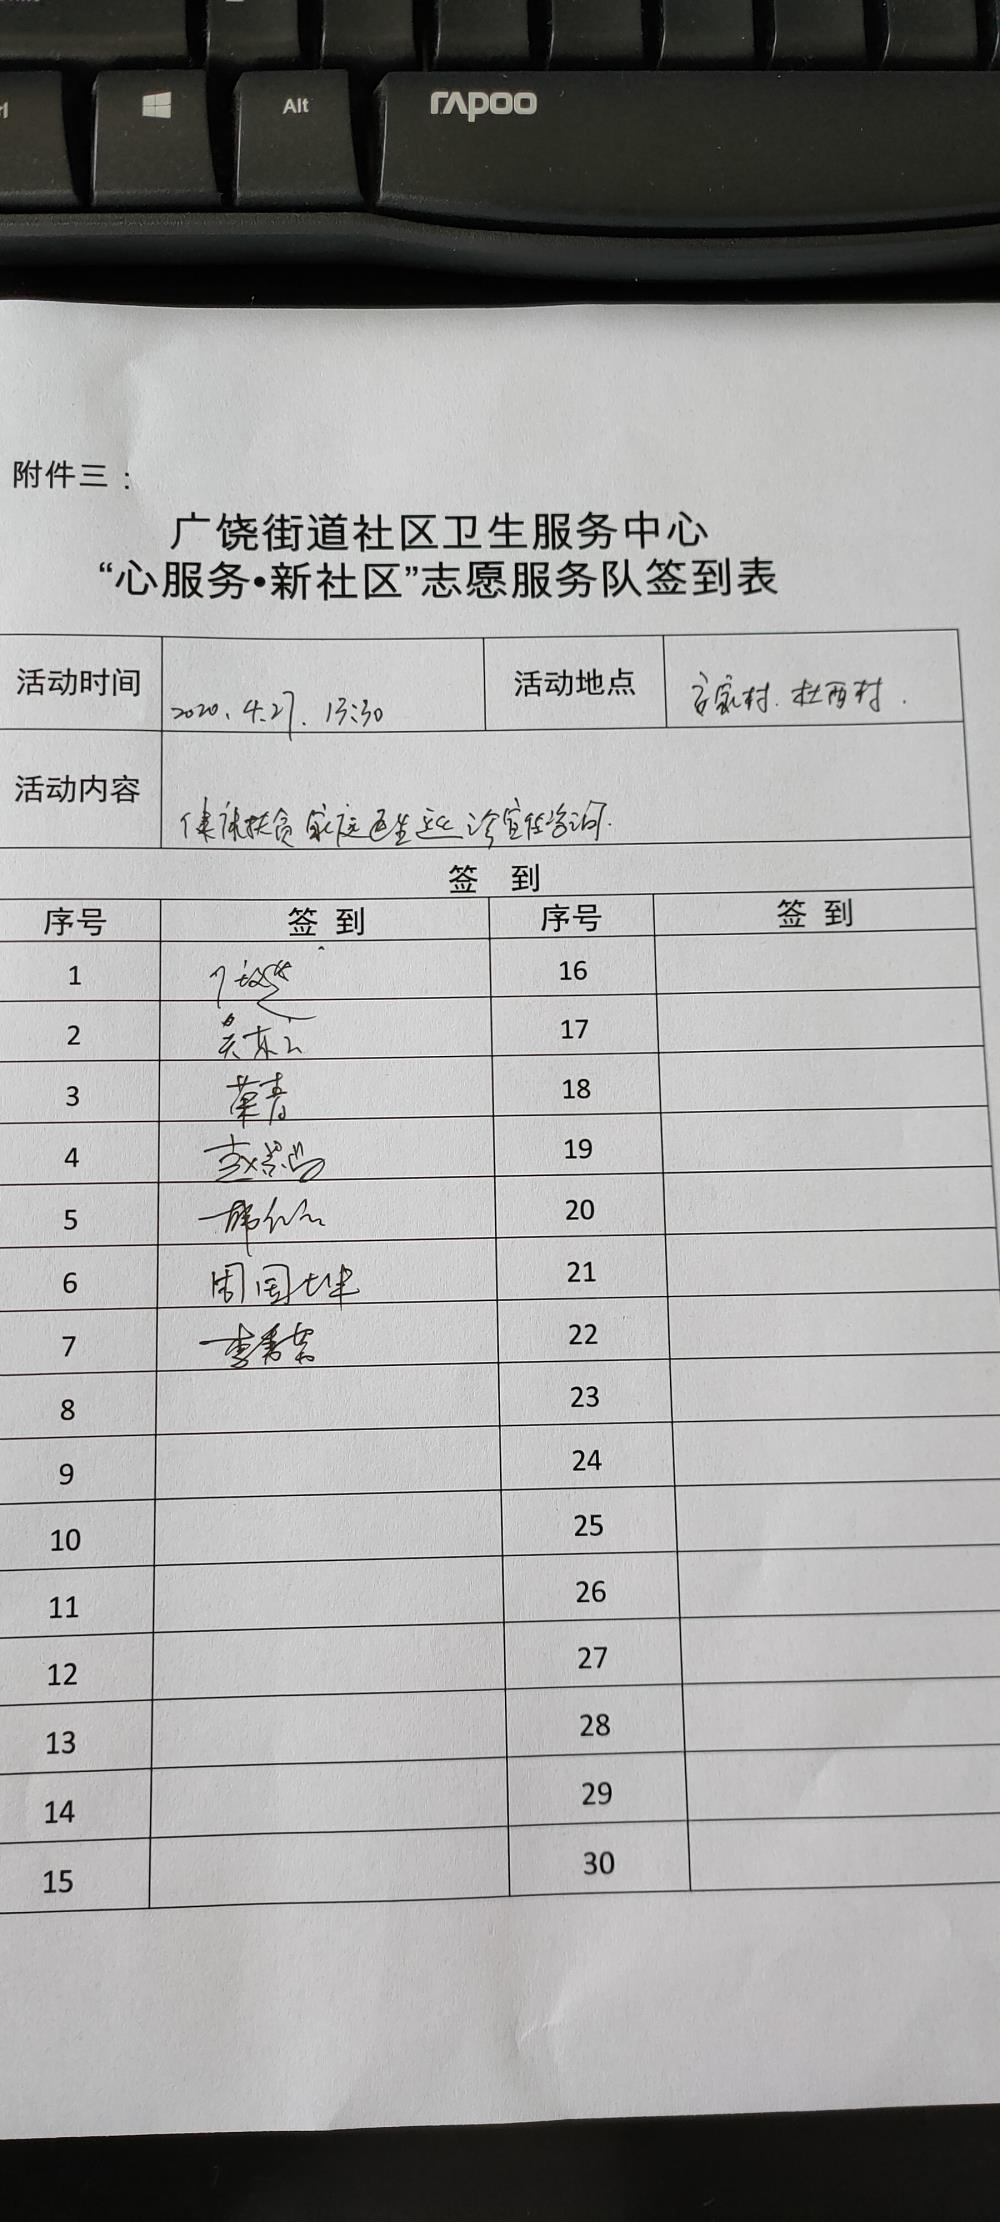 Alt
rapoo
附件三：
广饶街道社区卫生服务中心
“心服务•新社区”志愿服务队签到表
活动时间 2020.4.27. 13:30 活动地点 家村. 杜西村.
活动内容 健康扶贫 家庭医生 巡诊宣传咨询.
签 到
序号 签 到 序号 签 到
1 16
2 17
3 18
4 19
5 20
6 周国 21
7 李秀荣 22
8 23
9 24
10 25
11 26
12 27
13 28
14 29
15 30